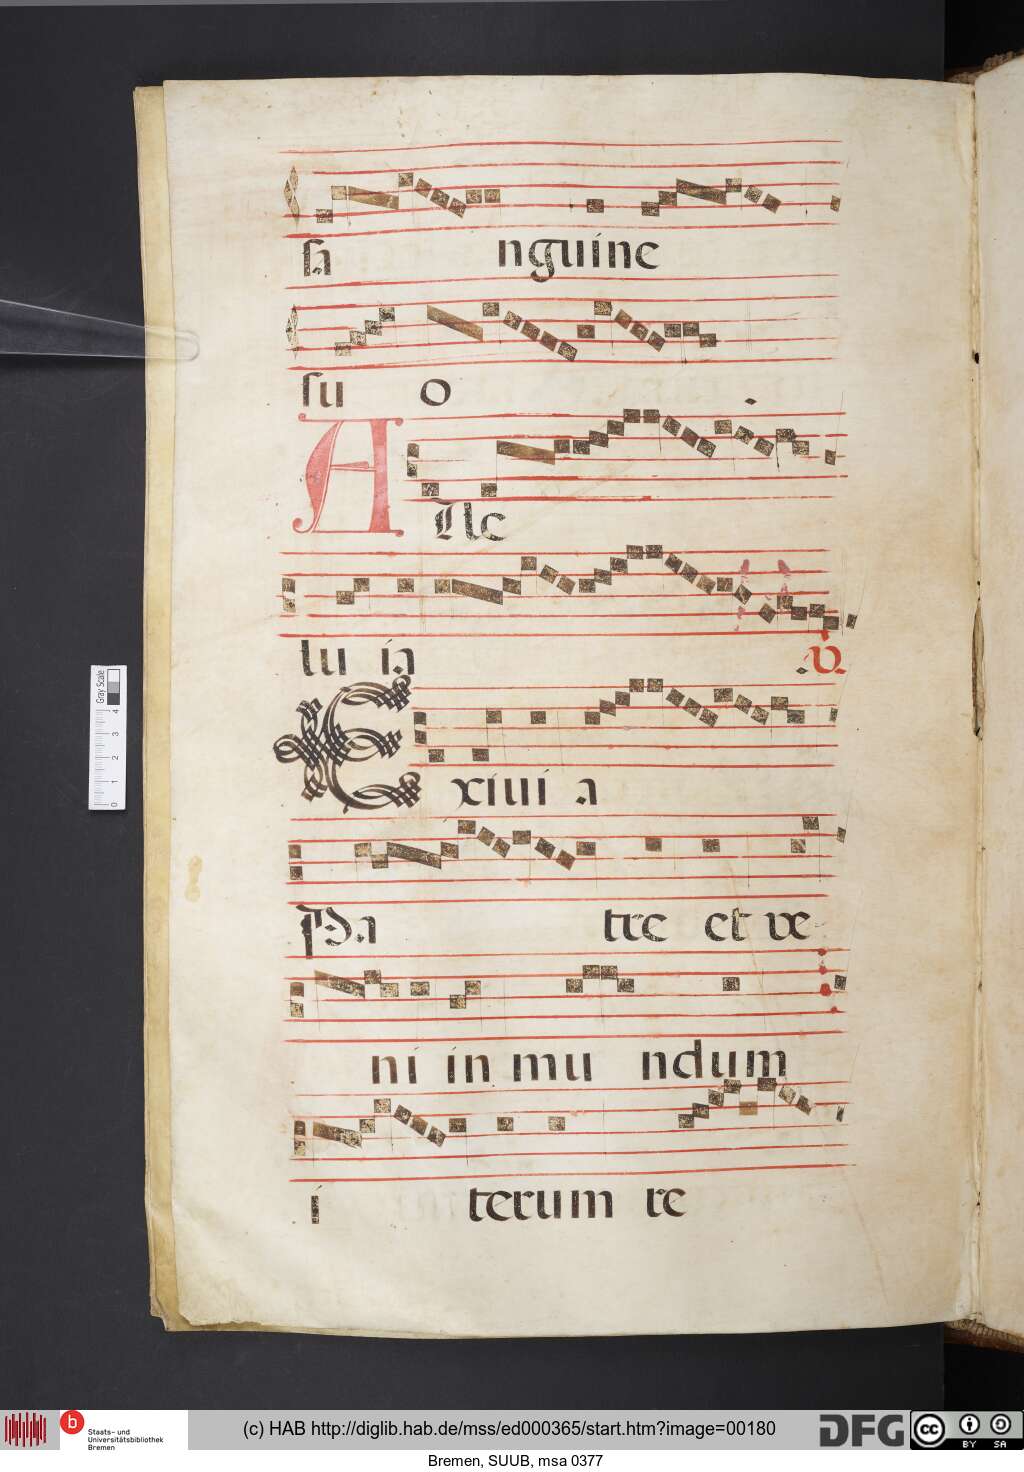 sa nguine
su o
A Lle
lu ia V
Exiui a
Pa tre et ve
ni in mu ndum
i terum re
Gray Scale
0 1 2 3 4
b
Staats- und
Universitätsbibliothek
Bremen
(c) HAB http://diglib.hab.de/mss/ed000365/start.htm?image=00180
DFG
cc BY SA
Bremen, SUUB, msa 0377